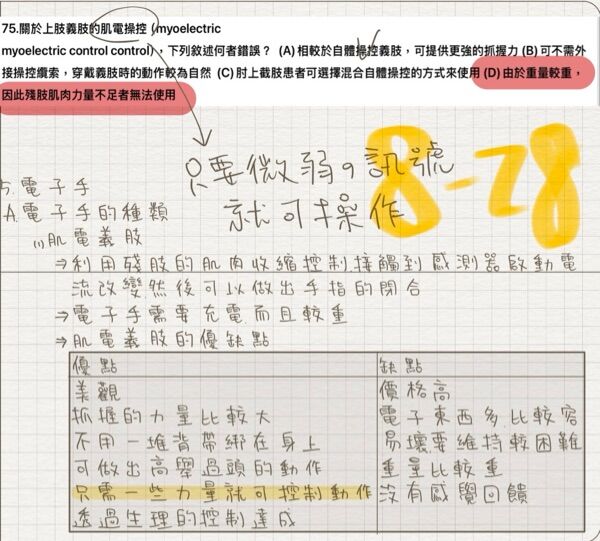 75.關於上肢義肢的肌電操控 (myoelectric
myoelectric control control)，下列敘述何者錯誤？ (A)相較於自體操控義肢，可提供更強的抓握力 (B)可不需外
接操控纜索，穿戴義肢時的動作較為自然 (C)肘上截肢患者可選擇混合自體操控的方式來使用 (D)由於重量較重，
因此殘肢肌肉力量不足者無法使用
只要微弱的訊號
就可操作
8-28
5.電子手
A.電子手的種類
(1)肌電義肢
⇒利用殘肢的肌肉收縮控制接觸到感測器啟動電
流改變然後可以做出手指的閉合
⇒電子手需要充電而且較重
⇒肌電義肢的優缺點
優點
美觀
抓握的力量比較大
不用一堆背帶綁在身上
可做出高舉過頭的動作
只需一些力量就可控制動作
透過生理的控制達成
缺點
價格高
電子東西多比較容
易壞要維持較困難
重量比較重
沒有感覺回饋